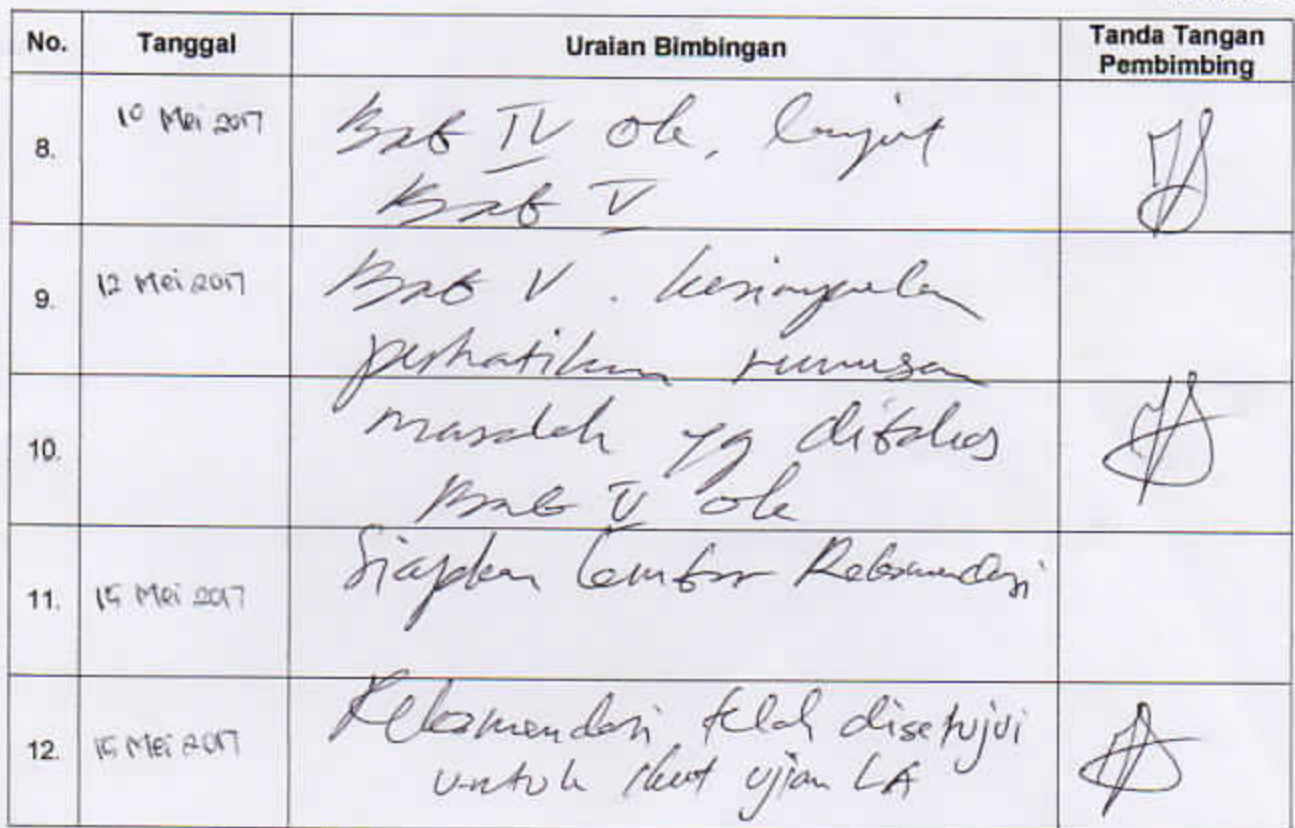 No. Tanggal Uraian Bimbingan Tanda Tangan Pembimbing
8. 10 Mei 2017 Bab IV ok, lanjut
Bab V
9. 12 Mei 2017 Bab V. kesimpulan
perhatikan rumusan
10. masalah yg dibahas
Bab V ok
11. 15 Mei 2017 Siapkan lembar Rekomendasi
12. 15 Mei 2017 Rekomendasi telah disetujui
untuk ikut ujian LA